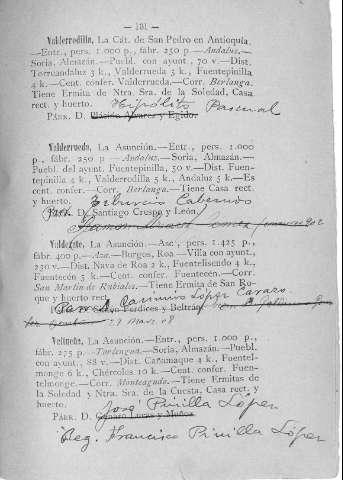 — 131 —
Valderrodilla, La Cát. de San Pedro en Antioquía.
—Entr., pers. 1.000 p., fábr. 250 p.—Andaluz.—
Soria, Almazán.—Puebl. con ayunt., 70 v.—Dist.
Torreandaluz 3 k., Valderrueda 3 k., Fuentepinilla
4 k.—Cent. confer. Valderrueda.—Corr. Berlanga.
Tiene Ermita de Ntra. Sra. de la Soledad, Casa
rect. y huerto. Hipólito Pascual
PÁRR. D. y Egido.
Valderrueda, La Asunción.—Entr., pers. 1.000
p., fábr. 250 p.—Andaluz.—Soria, Almazán.—
Puebl. del ayunt. Fuentepinilla, 50 v.—Dist. Fuen-
tepinilla 4 k., Valderrodilla 5 k., Andaluz 5 k.—Es
cent. confer.—Corr. Berlanga.—Tiene Casa rect.
y huerto. Tiburcio
PÁRR. D. Santiago Crespo y León.
La Asunción.—Asc., pers. 1.425 p.,
fábr. 400 p.—Aze.—Burgos, Roa.—Villa con ayunt.,
230 v.—Dist. Nava de Roa 2 k., Fuentelisendo 4 k.,
Fuentecén 5 k.—Cent. confer. Fuentecén.—Corr.
San Martín de Rubiales.—Tiene Ermita de San Ro-
que y huerto rect.
Parr. D. López
y Beltrán
Velilla, La Asunción.—Entr., pers. 1.000 p.,
fábr. 275 p.—Tordengua.—Soria, Almazán.—Puebl.
con ayunt., 88 v.—Dist. Cañamaque 4 k., Fuentel-
monge 6 k., Chércoles 10 k.—Cent. confer. Fuen-
telmonge.—Corr. Monteagudo.—Tiene Ermitas de
la Soledad y Ntra. Sra. de la Cuesta, Casa rect. y
huerto. José Pinilla López
PÁRR. D. Genaro Lucas y Muñoz.
Reg. Francisco Pinilla López